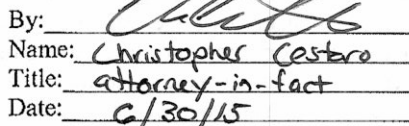 By:
Name: Christopher Cestaro
Title: attorney-in-fact
Date: 6/30/15